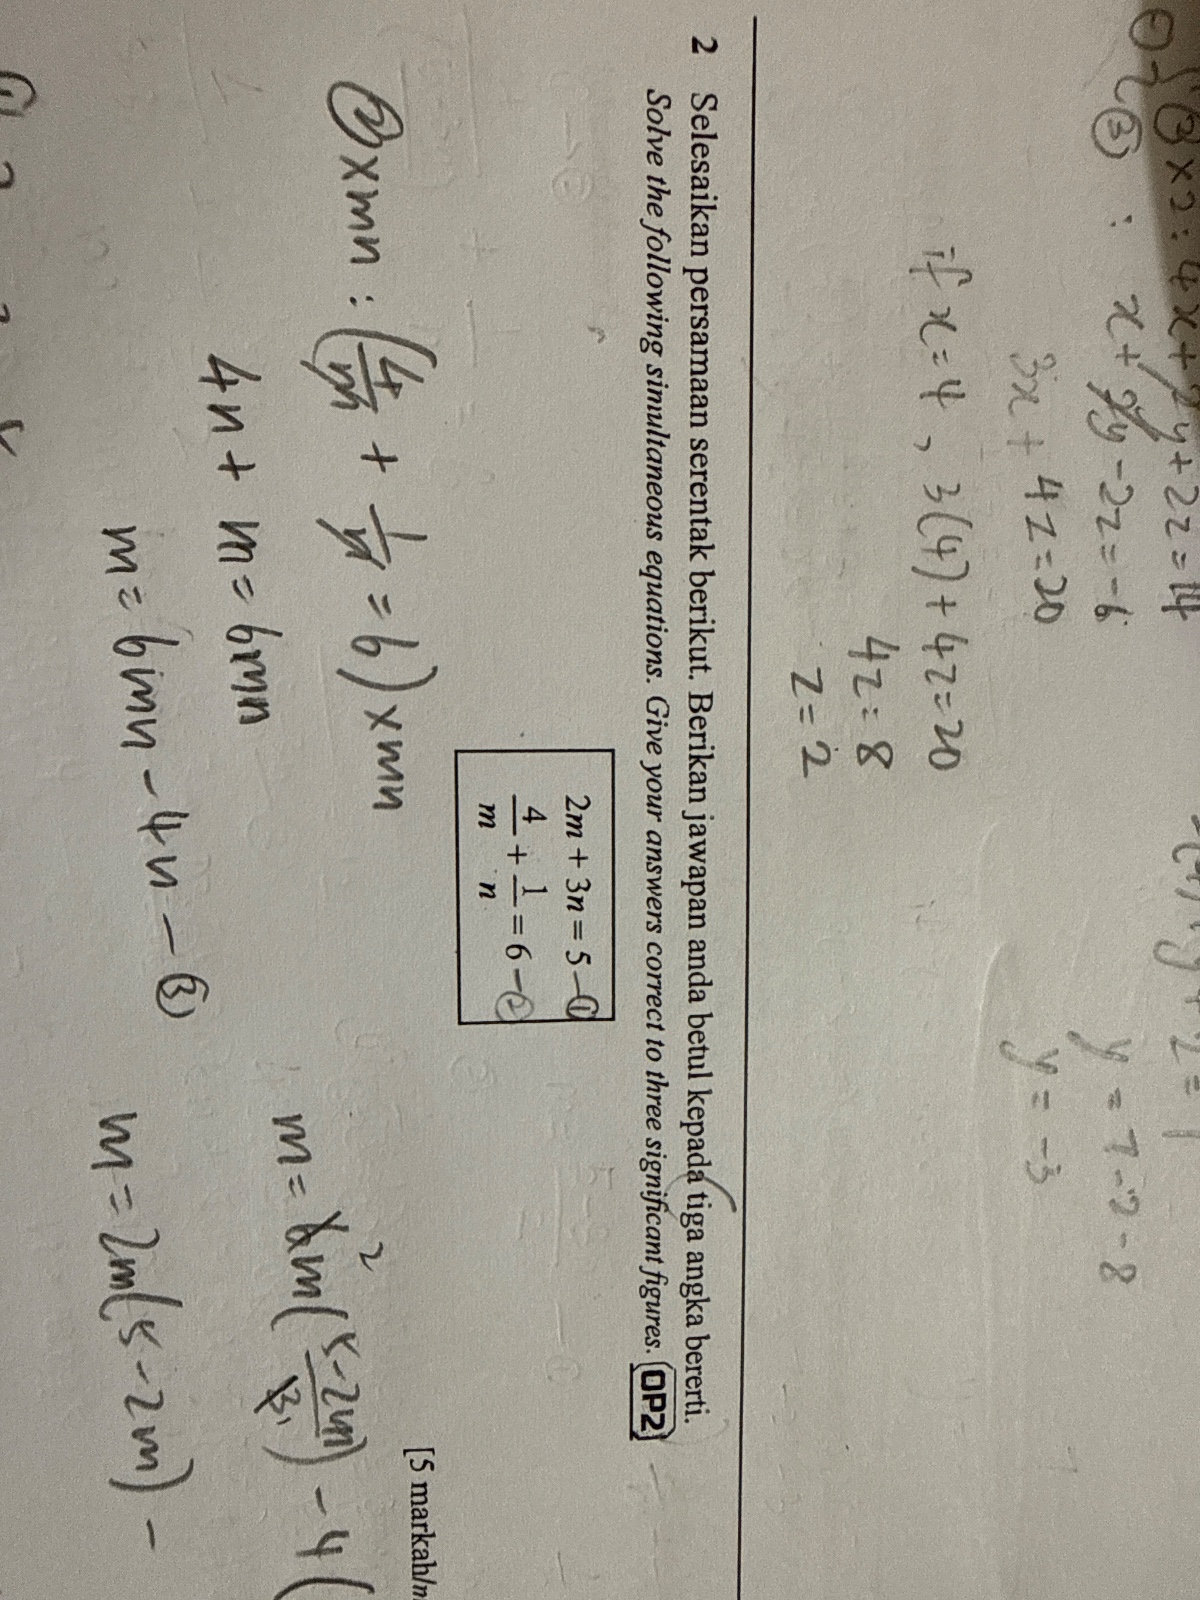 ③ × 2 : 4x + 2y + 2z = 14
③ : x + 2y - 2z = -6
3x + 4z = 20
if x = 4 , 3(4) + 4z = 20
4z = 8
z = 2
y = 7 - 2 - 8
y = -3
2 Selesaikan persamaan serentak berikut. Berikan jawapan anda betul kepada tiga angka bererti.
Solve the following simultaneous equations. Give your answers correct to three significant figures. DP2
[5 markah/m
2m + 3n = 5 - ①
4/m + 1/n = 6 - ②
② × mn : (4/m + 1/n = 6) × mn
4n + m = 6mn
m = 6mn - 4n - ③
m = 6m((5 - 2m)/3) - 4(
m = 2m(5 - 2m) -